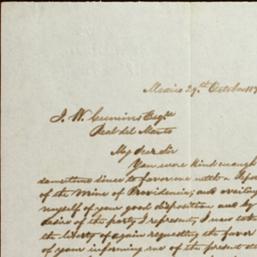 Mexico 29th October 18
J. W. Cummins Esqre
Real del Monte
My dear Sir
You were kind enough
sometime since to favor me with a
of the Mine of Providencia; and availing
myself of your good disposition and by
desire of the party I represent, I now take
the liberty of again requesting the favor
of your informing me of the present